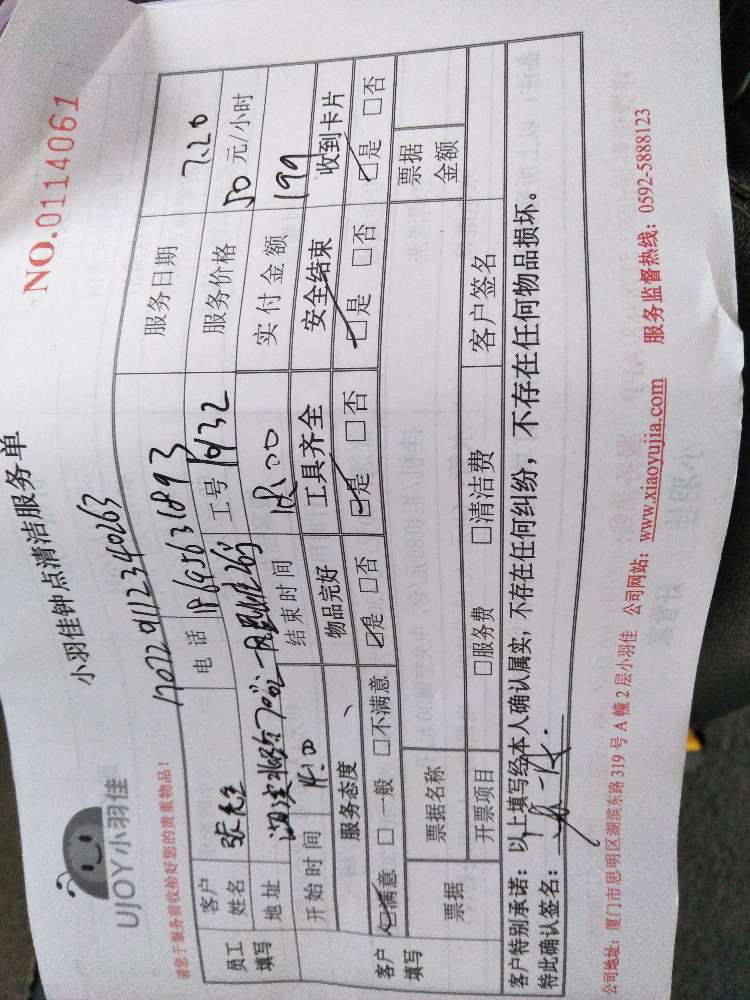 UJOY小羽佳
小羽佳钟点清洁服务单
NO.0114061
请您于服务前收拾好您的贵重物品!
170729112340263
员工填写
客户姓名 张先生 电话 18695631893 服务日期 7.20
地址 工号 1932 服务价格 50元/小时
开始时间 14:00 结束时间 18:00 实付金额 199
客户填写
服务态度 物品完好 工具齐全 安全结束 收到卡片
☑满意 □一般 □不满意 ☑是 □否 ☑是 □否 ☑是 □否 ☑是 □否
票据 票据名称 票据金额
开票项目 □服务费 □清洁费 客户签名
客户特别承诺:以上填写经本人确认属实,不存在任何纠纷,不存在任何物品损坏。
特此确认签名:
公司地址:厦门市思明区湖滨东路319号A幢2层小羽佳 公司网站:www.xiaoyujia.com 服务监督热线:0592-5888123